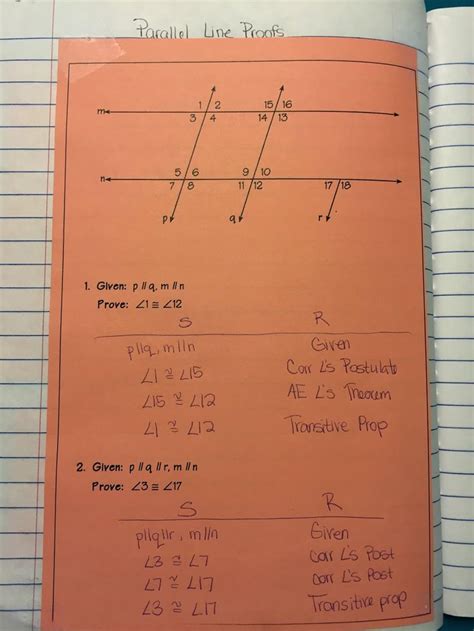 Parallel Line Proofs
1 2 15 16
m 3 4 14 13
5 6 9 10
n 7 8 11 12 17 18
p q r
1. Given: p // q, m // n
Prove: ∠1 ≅ ∠12
S R
p||q, m//n Given
∠1 ≅ ∠15 Corr ∠'s Postulate
∠15 ≅ ∠12 AE ∠'s Theorem
∠1 ≅ ∠12 Transitive Prop
2. Given: p // q // r, m // n
Prove: ∠3 ≅ ∠17
S R
p||q||r, m//n Given
∠3 ≅ ∠7 Corr ∠'s Post
∠7 ≅ ∠17 Corr ∠'s Post
∠3 ≅ ∠17 Transitive prop